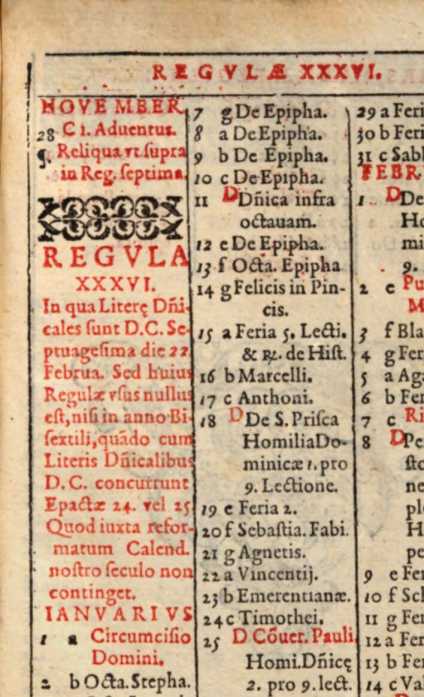 REGVLÆ XXXVI.
NOVEMBER.
28 C 1. Aduentus.
¶ Reliqua vt supra
in Reg. septima.
REGVLA
XXXVI.
In qua Literę Dñi-
cales sunt D.C. Se-
ptuagesima die 22
Februa. Sed huius
Regulæ vsus nullus
est, nisi in anno Bi-
sextili, quãdo cum
Literis Dñicalibus
D.C. concurrunt
Epactæ 24. vel 25
Quod iuxta refor-
matum Calend.
nostro seculo non
continget.
IANVARIVS
1 a Circumcisio
Domini.
2 b Octa. Stepha.
7 g De Epipha.
8 a De Epipha.
9 b De Epipha.
10 c De Epipha.
11 D Dñica infra
octauam.
12 e De Epipha.
13 f Octa. Epipha
14 g Felicis in Pin-
cis.
15 a Feria 5. Lecti.
& ℞. de Hist.
16 b Marcelli.
17 c Anthoni.
18 D De S. Prisca
Homilia Do-
minicæ 1. pro
9. Lectione.
19 e Feria 2.
20 f Sebastia. Fabi.
21 g Agnetis.
22 a Vincentij.
23 b Emerentianæ.
24 c Timothei.
25 D Cõuer. Pauli
Homi. Dñicę
2. pro 9. lect.
29 a Feri
30 b Feri
31 c Sabb
FEBR
1 D De
Ho
mi
9.
2 e Pu
M
3 f Bla
4 g Fer
5 a Aga
6 b Fer
7 c Ri
8 D Per
sto
ne
ple
H
pe
9 e Fer
10 f Sch
11 g Feri
12 a Fer
13 b Fer
14 c Val